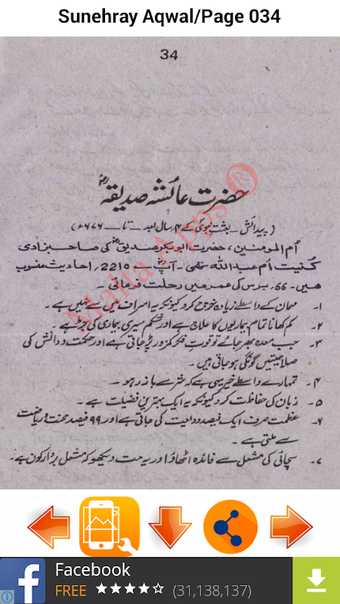 Sunehray Aqwal/Page 034
34
حضرت عائشہ صدیقہؓ
(پیدائش۔ بعثت نبوی کے ۴ سال بعد ۔ تا ۔ ۶۶۷۶)
اُم المومنین، حضرت ابوبکر صدیقؓ کی صاحبزادی
کنیت اُم عبداللہ تھی۔ آپؓ سے 2210 احادیث منسوب
ہیں۔ 66 برس کی عمر میں رحلت فرمائی۔
۱۔ مہمان کے واسطے زیادہ خرچ کرو کیونکہ یہ اسراف میں سے نہیں ہے۔
۲۔ کم کھانا تمام بیماریوں کا علاج ہے اور شکم سیری بیماری کی جڑ ہے۔
۳۔ جب معدہ بھر جائے تو قوتِ فکر کمزور پڑ جاتی ہے اور حکمت و دانش کی
صلاحیتیں گونگی ہو جاتی ہیں۔
۴۔ تمہارے واسطے خیر یہی ہے کہ شر سے باز رہو۔
۵۔ زبان کی حفاظت کرو کیونکہ یہ ایک بہترین فضیلت ہے۔
۶۔ عظمت صرف ایک فیصد ودیعت کی جاتی ہے اور ۹۹ فیصد محنت و ریاضت
سے ملتی ہے۔
۷۔ سچائی کی مشعل سے فائدہ اٹھاؤ اور یہ مت دیکھو کہ مشعل بردار کون ہے۔
Malta Apps ®
Facebook
FREE (31,138,137)